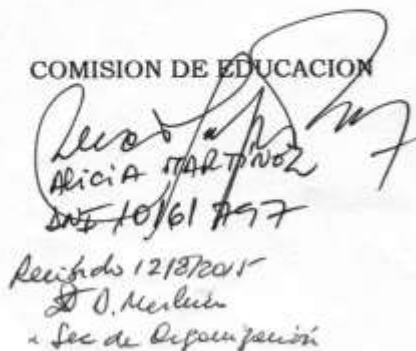 COMISION DE EDUCACION
ALICIA MARTINEZ
DNI 10161 797
Recibido 12/8/2015
D.
Sec de Organización